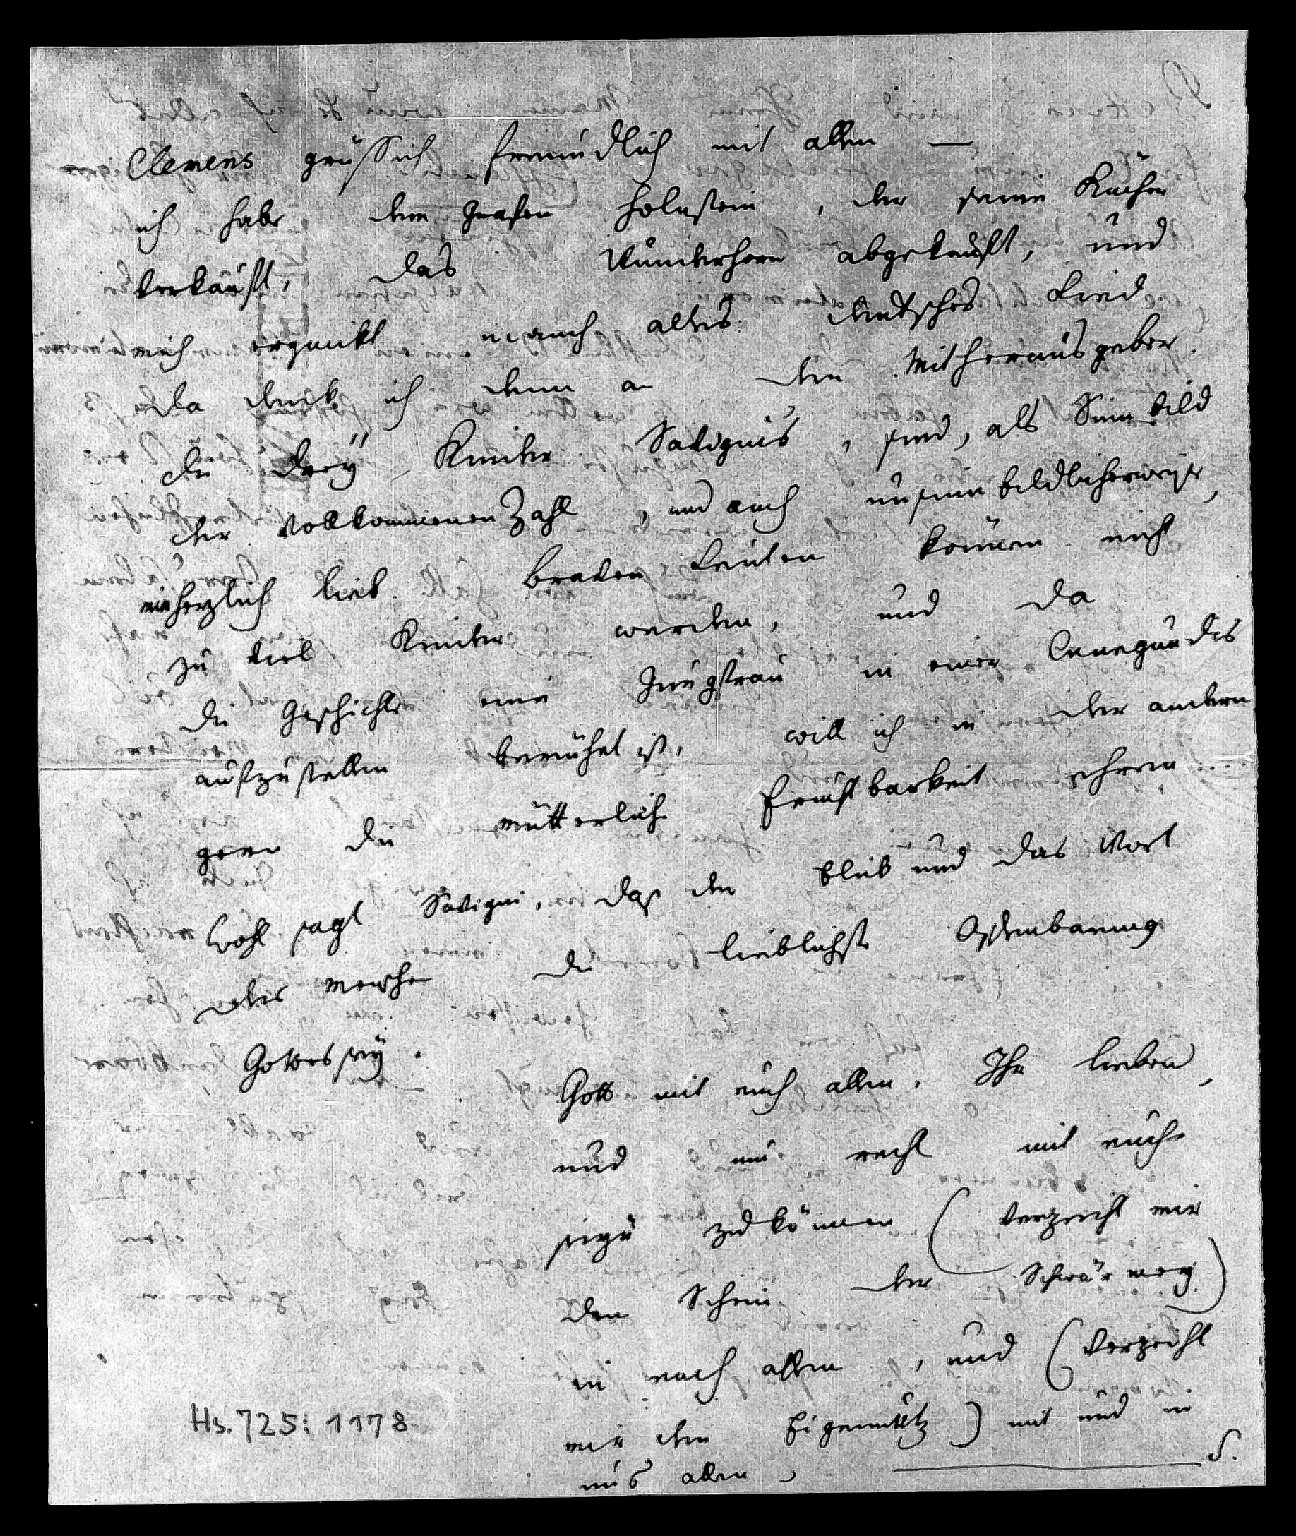 Clemens grüss ich freundlich mit allen —
ich habe dem Grafen Holnstein, der seine Bücher
verkauft, das Wunderhorn abgekauft, und
mich erquickt manch altes deutsches Lied
Da denk ich denn an den Mitherausgeber.
die drey Kinder Savignis, sind, als Sinnbild
der vollkommenen Zahl, und auch unsinnbildlicherweise,
mir herzlich lieb. Braven Leuten können nicht
zu viel Kinder werden, und da
die Geschichte eine Jungfrau in einer Cunegundis
aufzustellen bemüht ist, will ich in der andern
gern die mütterliche Fruchtbarkeit ehren
wohl sagt Savigni, daß der Blick und das Wort
des die lieblichste Offenbarung
Gottes sey.
Gott mit euch allen, Ihr lieben,
und um recht mit euch
seyn zu können (verzeiht mir
den Schein der Schwärmerey)
in euch allen, und (verzeiht
mir den Eigennutz) mit und in
uns allen,
S.
Hs. 725: 1178